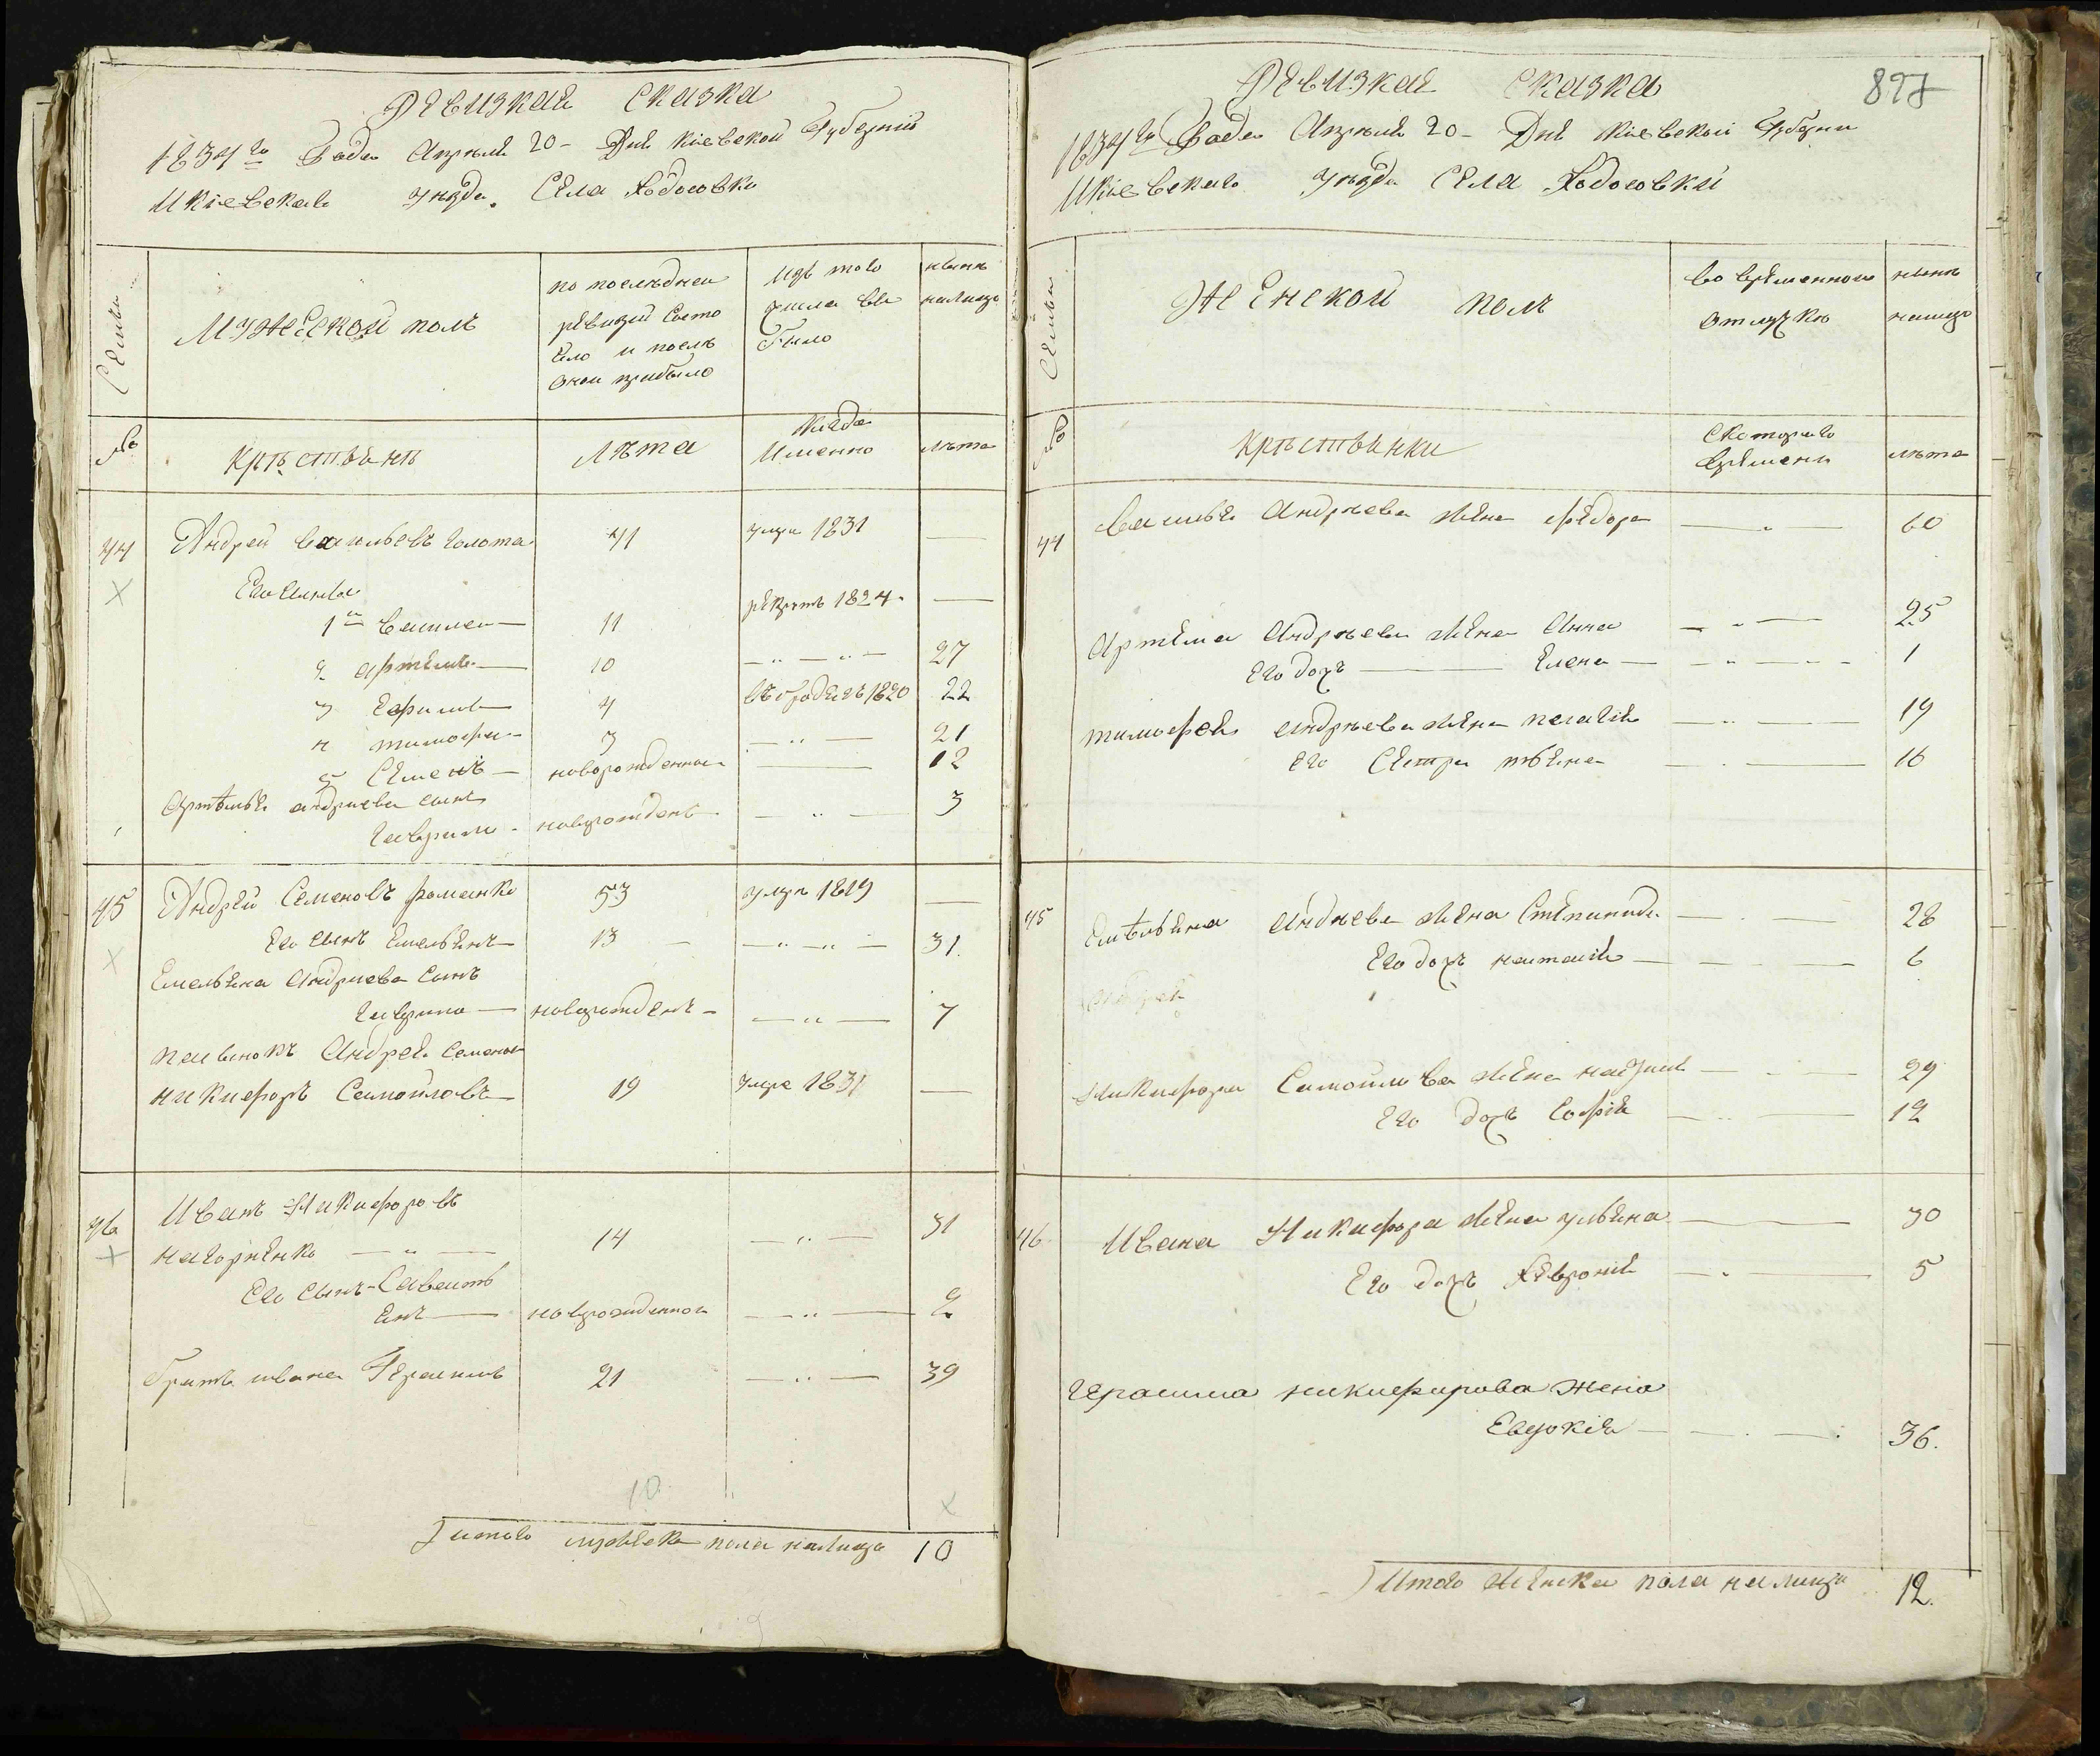 Ревизкая сказка
1834го Года Апреля 20 - Дня Киевской Губернии
и Киевскаго уезда. Села Ходосовки
Семьи
Мужеской полъ
по последнеи
ревизии состо
ело и после
онои прибыло
изъ того
числа вы
было
ныне
налицо
№
Крестьяне
Лета
когда
Именно
лета
44
Андрей васильевъ голота
41
умре 1831
—
Его сыновья
1й василеи —
11
рекрутъ 1824.
—
2 артемъ —
10
27
3 Ефимъ —
4
въ бродягахъ 1820
22
4 тимофеи —
3
21
5 Семенъ —
новорожденнои
12
Артемья андриева сынъ
Гаврило - новорожденъ
3
45
Андрей Семеновъ романко
53
умре 1819
—
Его сынъ Емельянъ —
13
31.
Емельяна Андриева сынъ
Гаврило — новорожденъ -
7
Андрея Семенова
никифоръ Самойловъ —
19
умре 1831
—
46
Иванъ Никифоровъ
нагорненко
14
31
Его сынъ - Савасть
янъ — новорожденнои
2
братъ ивана Герасимъ
21
39
10
итого мужеска пола налицо 10
827
Ревизкая сказка
1834го Года Апреля 20 - Дня Киевской Губернии
и Киевскаго уезда Села Ходосовки
Семьи
Женской полъ
во временнои
отлучке
ныне
налицо
№
крестьянки
Скоторого
времени
лета
44
Андреева жена федора
60
Артема Андреева жена Анна
25
Его дочъ — Елена —
1
тимофея андреева жена пелагия
19
Его Сестра
16
45
Емельяна Андреева жена Степанида
28
Его дочъ наталия —
6
Никифора Самойлова жена
29
Его дочъ Софія
12
46
Ивана Никифора жена ульяна
30
Его дочъ Хевронія
5
Герасима никифирова жена
Евдокія —
36.
Итого женска пола налицо 12.